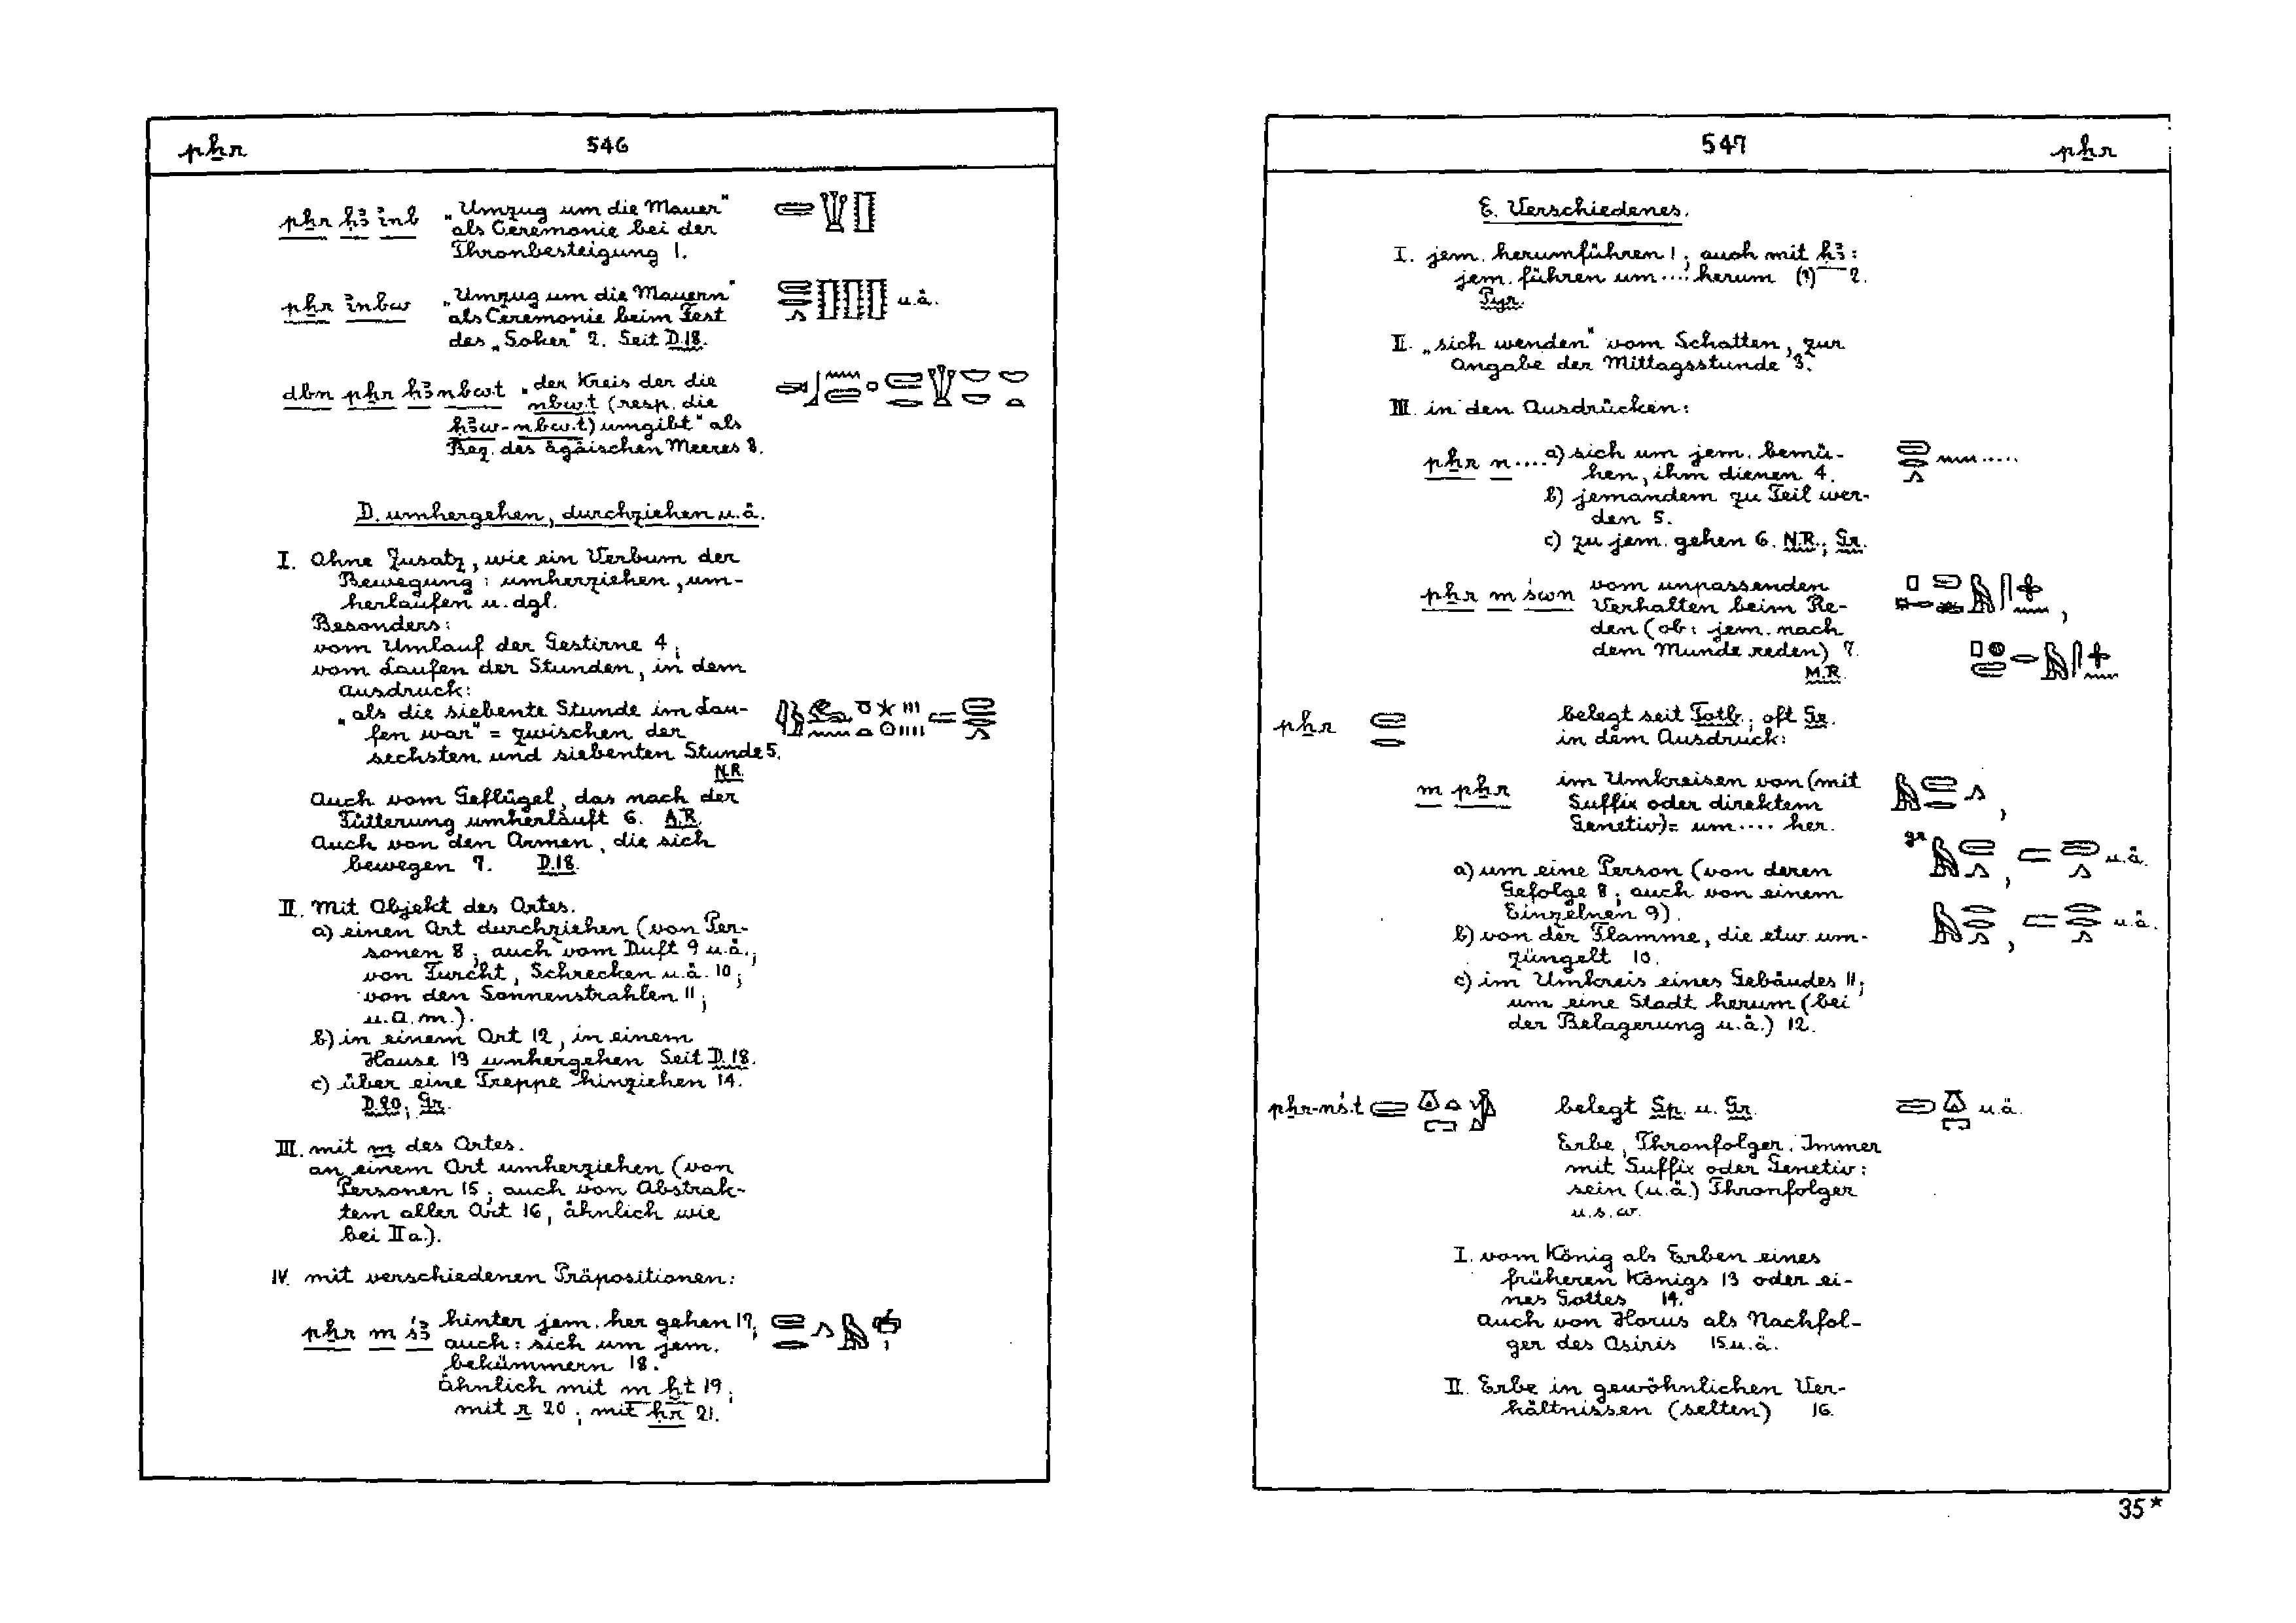 pẖr 546
pẖr ḥꜣ inb „Umzug um die Mauer"
als Ceremonie bei der
Thronbesteigung 1.
pẖr inbw „Umzug um die Mauern" u.ä.
als Ceremonie beim Fest
des „Soker" 2. Seit D.18.
dbn pẖr ḥꜣ nbw.t „der Kreis der die
nbw.t (resp. die
ḥꜣw-nbw.t) umgibt" als
Bez. des ägäischen Meeres 3.
D. umhergehen, durchziehen u.ä.
I. Ohne Zusatz, wie ein Verbum der
Bewegung: umherziehen, um-
herlaufen u. dgl.
Besonders:
vom Umlauf der Gestirne 4;
vom Laufen der Stunden, in dem
Ausdruck:
„als die siebente Stunde im Lau-
fen war" = zwischen der
sechsten und siebenten Stunde 5.
N.R.
Auch vom Geflügel, das nach der
Fütterung umherläuft 6. A.R.
Auch von den Armen, die sich
bewegen 7. D.18.
II. Mit Objekt des Ortes.
a) einen Ort durchziehen (von Per-
sonen 8; auch vom Duft 9 u.ä.;
von Furcht, Schrecken u.ä. 10;
von den Sonnenstrahlen 11;
u.a.m.).
b) in einem Ort 12, in einem
Hause 13 umhergehen Seit D.18.
c) über eine Treppe hinziehen 14.
D.20; Gr.
III. mit m des Ortes.
an einem Ort umherziehen (von
Personen 15; auch von Abstrak-
tem aller Art 16, ähnlich wie
bei IIa.).
IV. mit verschiedenen Präpositionen:
pẖr m śꜣ hinter jem. her gehen 17;
auch: sich um jem.
bekümmern 18.
ähnlich mit m ḫt 19;
mit r 20; mit ḥr 21.
547 pẖr
E. Verschiedenes.
I. jem. herumführen 1; auch mit ḥꜣ:
jem. führen um .... herum (?) 2.
Pyr.
II. „sich wenden" vom Schatten, zur
Angabe der Mittagsstunde 3.
III. in den Ausdrücken:
pẖr n .... a) sich um jem. bemü-
hen, ihm dienen 4.
b) jemandem zu Teil wer-
den 5.
c) zu jem. gehen 6. N.R.; Gr.
pẖr m śwn vom unpassenden
Verhalten beim Re-
den (ob: jem. nach
dem Munde reden) 7.
M.R.
pẖr belegt seit Totb.; oft Gr.
in dem Ausdruck:
m pẖr im Umkreisen von (mit
Suffix oder direktem
Genetiv) = um .... her.
gr u.ä.
a) um eine Person (von deren
Gefolge 8; auch von einem
Einzelnen 9). u.ä.
b) von der Flamme, die etw. um-
züngelt 10.
c) im Umkreis eines Gebäudes 11;
um eine Stadt herum (bei
der Belagerung u.ä.) 12.
pẖr-nś.t belegt Sp. u. Gr. u.ä.
Erbe, Thronfolger. Immer
mit Suffix oder Genetiv:
sein (u.ä.) Thronfolger
u.s.w.
I. vom König als Erben eines
früheren Königs 13 oder ei-
nes Gottes 14.
Auch von Horus als Nachfol-
ger des Osiris 15 u.ä.
II. Erbe in gewöhnlichen Ver-
hältnissen (selten) 16.
35*